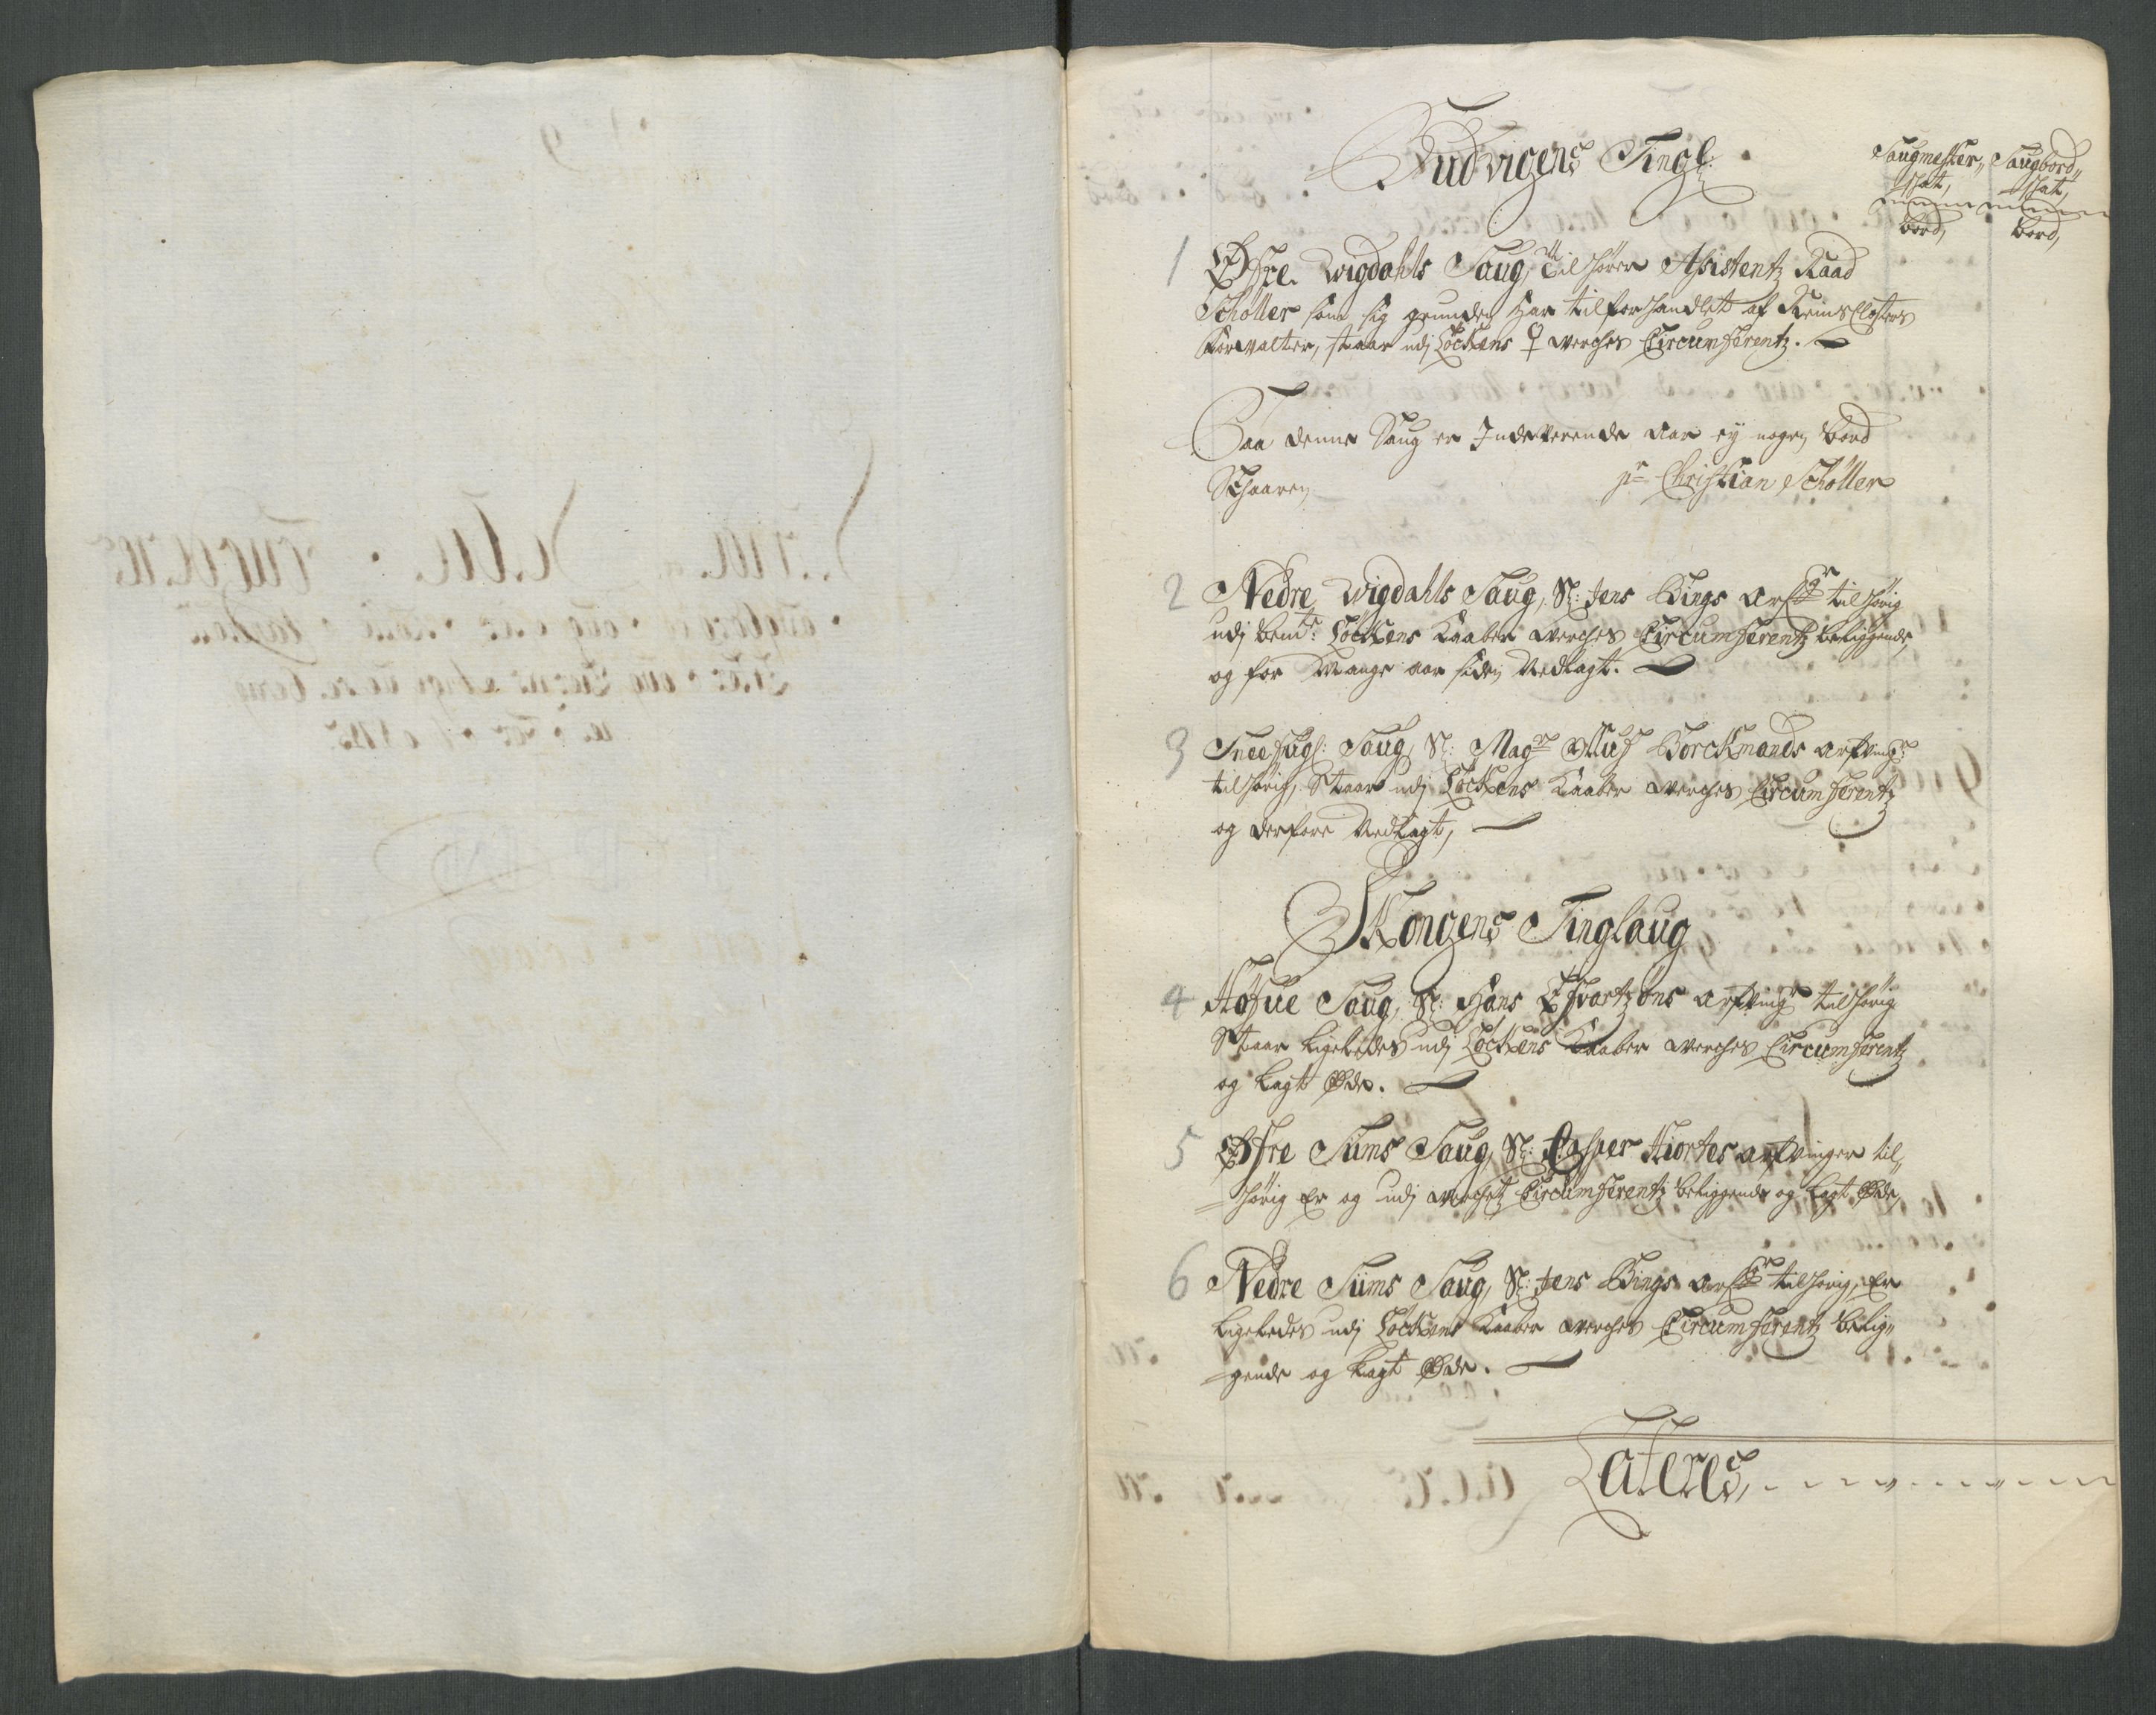 Budvigens Tingl:
Saugmester„ Saugbord„
skat, skat,
bord, bord,
1 Øfre Wigdahls Saug, tilhører Assistentz Raad
Schøller som sig grunden har tilforhandlet af Reins Closters
Forvalter, staar udj Løckens ♀ Werches Circumferentz.
Paa denne Saug er Indeverende Aar ey nogen bord
Skaaren
pr Christian Schøller
2 Nedre Wigdahls Saug, Sl: Jens Bings Arfgr tilhørig
udj bemte: Løckens Kaaber Werches Circumferentz beliggende,
og for Mange aar siden Nedlagt.
3 Sneefugl: Saug, Sl: Magr Oluf Borckmands Arfving:
tilhørig, Staar udj Løckens Kaaber Werches Circumferentz
og derfore Nedlagt,
Skongens Tinglaug
4 Høfue Saug, Sl: Hans Efvartzøns Arfvingr tilhørig
Staar ligeledes udj Løckens Kaaber Werches Circumferentz
og lagt Øde.
5 Øfre Sums Saug, Sl: Casper Hiortes Arfvinger til„
hørig Er og udj Werchetz Circumferentz beliggende og lagt Øde,
6 Nedre Sums Saug, Sl: Jens Bings Arfgr tilhørig, Er
ligeledes udj Løckens Kaaber Werches Circumferentz belig„
gende og lagt Øde.
Lateres,